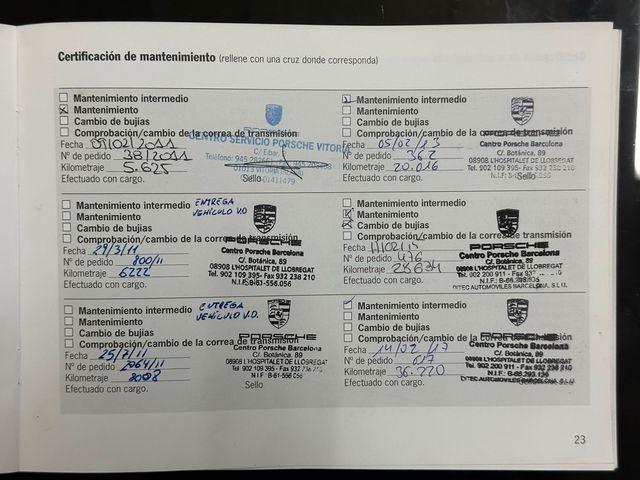 Certificación de mantenimiento (rellene con una cruz donde corresponda)
Mantenimiento intermedio
Mantenimiento
Cambio de bujías
Comprobación/cambio de la correa de transmisión
Fecha 09/02/2011
Nº de pedido 38/2011
Kilometraje 5.625
Efectuado con cargo.
Sello
PORSCHE
CENTRO SERVICIO PORSCHE VITORIA
C/ Eibar,
Teléfono: 945
01013 VITORIA
Mantenimiento intermedio
Mantenimiento
Cambio de bujías
Comprobación/cambio de la correa de transmisión
Fecha 05/02/13
Nº de pedido 362
Kilometraje 20.016
Efectuado con cargo.
Sello
PORSCHE
Centro Porsche Barcelona
C/. Botánica, 89
08908 L'HOSPITALET DE LLOBREGAT
Tel. 902 109 395 - Fax 932 238 210
Mantenimiento intermedio
Mantenimiento
Cambio de bujías
Comprobación/cambio de la correa de transmisión
ENTREGA
VEHÍCULO V.O
Fecha 29/3/11
Nº de pedido 800/11
Kilometraje 6222
Efectuado con cargo.
PORSCHE
Centro Porsche Barcelona
C/. Botánica, 89
08908 L'HOSPITALET DE LLOBREGAT
Tel. 902 109 395 - Fax 932 238 210
N.I.F.: B-61-556.056
Mantenimiento intermedio
Mantenimiento
Cambio de bujías
Comprobación/cambio de la correa de transmisión
Fecha
Nº de pedido 476
Kilometraje 28634
Efectuado con cargo.
PORSCHE
Centro Porsche Barcelona
C/. Botánica, 89
08908 L'HOSPITALET DE LLOBREGAT
Tel. 902 200 911 - Fax 932
DITEC AUTOMOVILES BARCELONA, S.L.U.
Mantenimiento intermedio
Mantenimiento
Cambio de bujías
Comprobación/cambio de la correa de transmisión
ENTREGA
VEHÍCULO V.O.
Fecha 25/7/11
Nº de pedido 2064/11
Kilometraje 8008
Efectuado con cargo.
Sello
PORSCHE
Centro Porsche Barcelona
C/. Botánica, 89
08908 L'HOSPITALET DE LLOBREGAT
Tel. 902 109 395 - Fax 932
Mantenimiento intermedio
Mantenimiento
Cambio de bujías
Comprobación/cambio de la correa de transmisión
Fecha 14/02/17
Nº de pedido 617
Kilometraje 36.220
Efectuado con cargo.
PORSCHE
Centro Porsche Barcelona
C/. Botánica, 89
08908 L'HOSPITALET DE LLOBREGAT
Tel. 902 200 911 - Fax 932 238 210
23